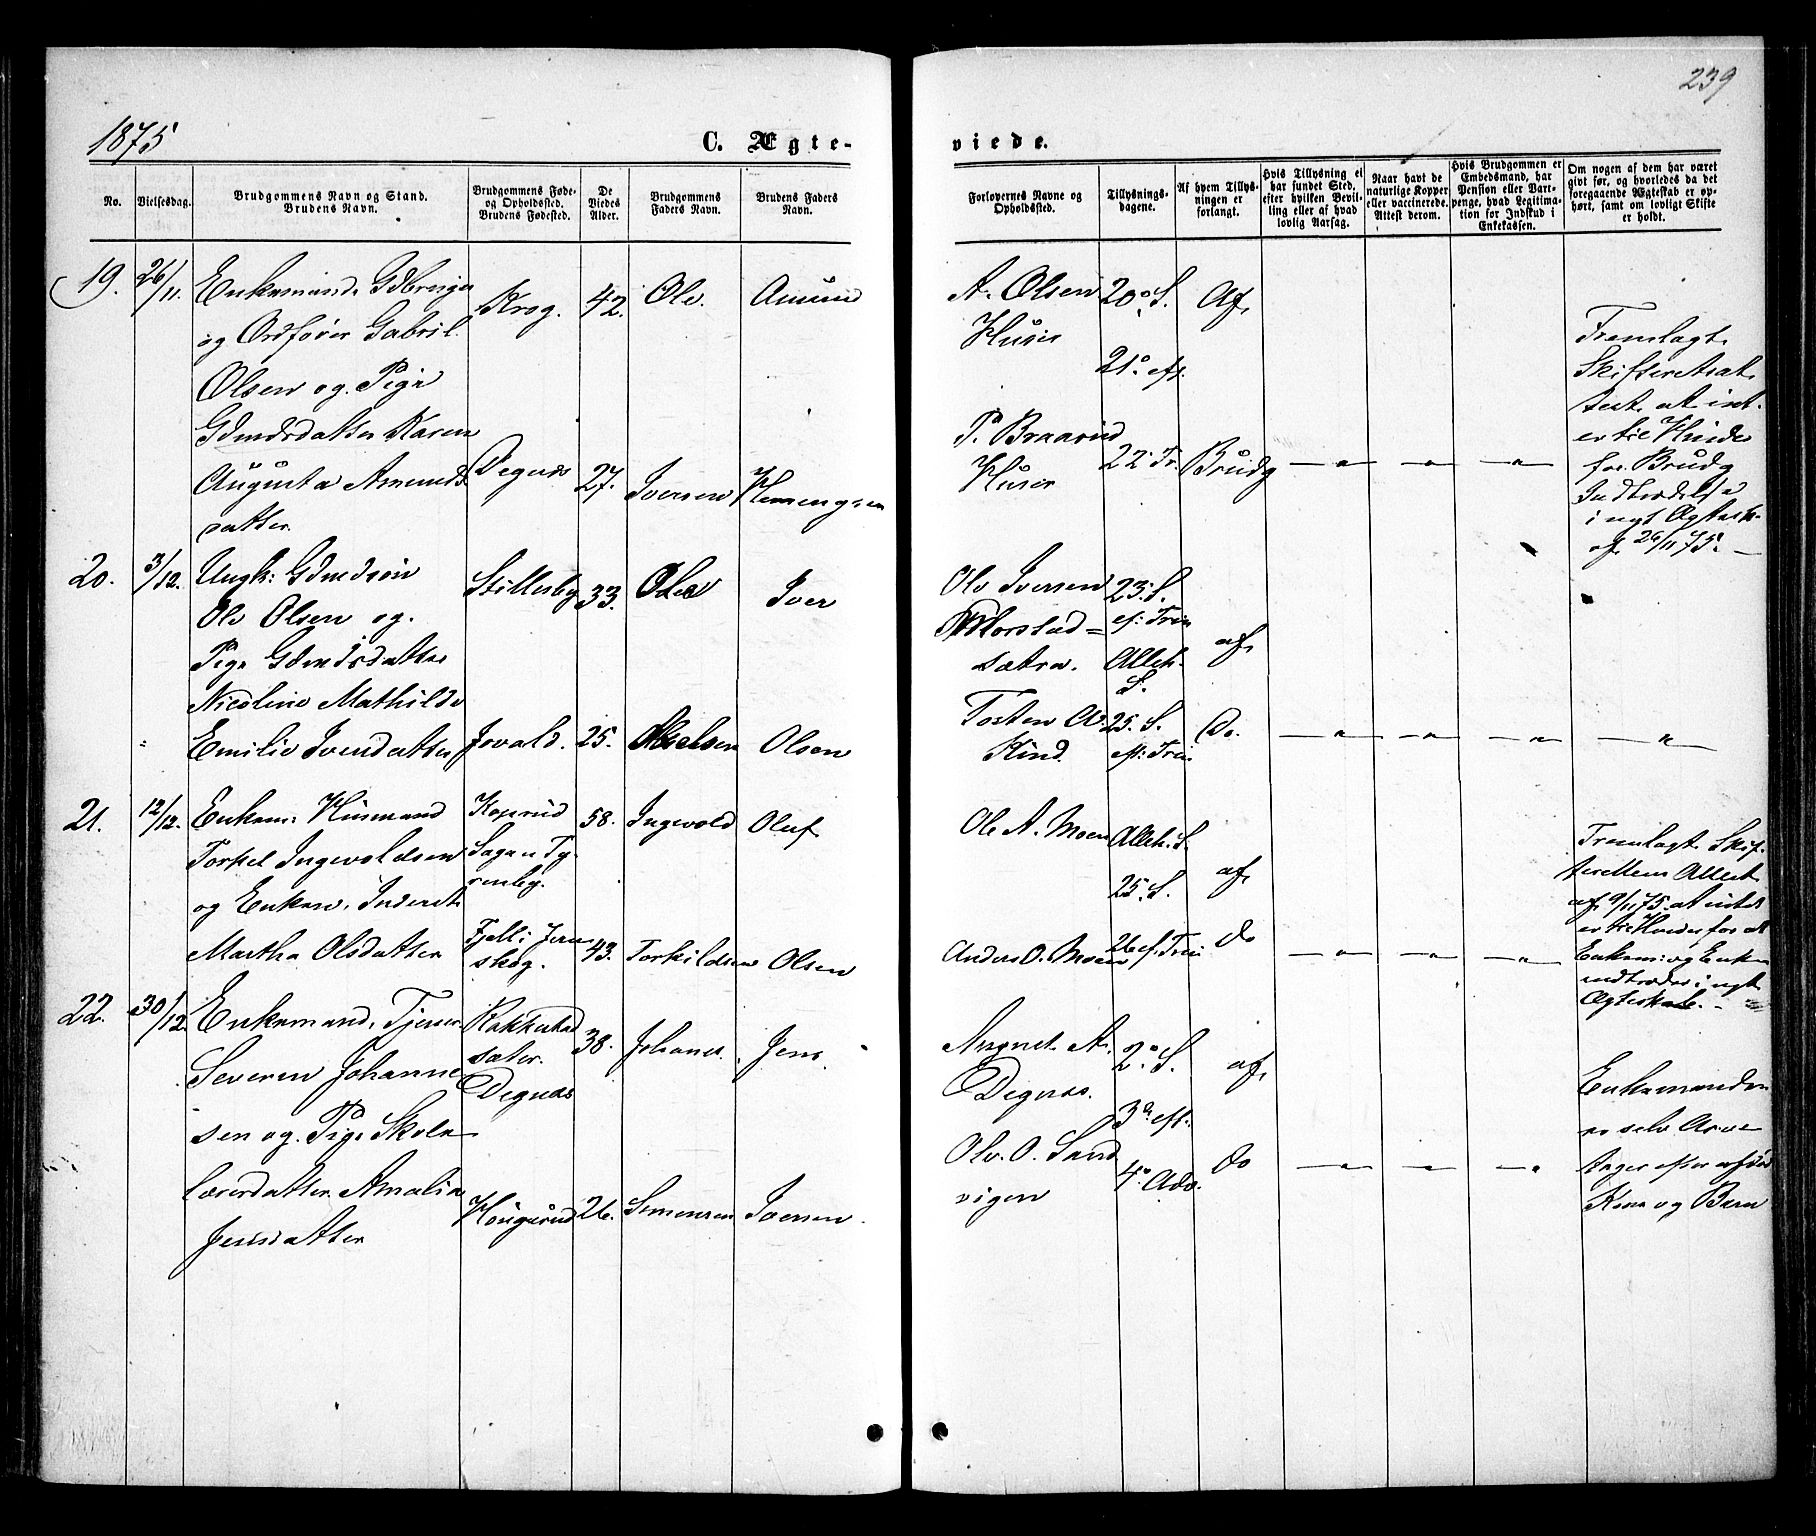 239
1875
C. Ægte-
viede.
No.
Vielsesdag.
Brudgommens Navn og Stand.
Brudens Navn.
Brudgommens Føde-
og Opholdssted.
Brudens Fødested.
De
Viedes
Alder.
Brudgommens
Faders Navn.
Brudens Faders
Navn.
Forlovernes Navne og
Opholdssted.
Tillysnings-
dagene.
Af hvem Tillys-
ningen er
forlangt.
Hvis Tillysning ei
har fundet Sted,
efter hvilken Bevil-
ling eller af hvad
lovlig Aarsag.
Naar havt de
naturlige Kopper
eller vaccinerede.
Attest derom.
Hvis Brudgommen er
Embedsmand, har
Pension eller Vart-
penge, hvad Legitima-
tion for Indskud i
Enkekassen.
Om nogen af dem har været
gift før, og hvorledes da det
foregaaende Ægteskab er op-
hørt, samt om lovligt Skifte
er holdt.
19.
26/11.
Enkemand, Gdbruger
og Ordfører Gabril
Olsen og Pige
Gdmdsdatter Karen
Augusta Amunds
datter
Krog.
Degnæs
42.
27.
Ole
Iversen
Amund
Flemengsen
A. Olsen
Huser
P. Braarud
Huser
20. S.
21. eft.
22. Tr.
Af
Brudg
Fremlagt
Skifteretsat
test at intet
er til Hinder
for Brudg
Indtrædelse
i nyt Ægtesk.
af 26/11 75.
20.
3/12.
Ungk: Gdmdsøn
Ole Olsen og
Pige Gdmdsdatter
Nicoline Mathilde
Emilie Iversdatter
Stillesby
33.
25.
Ole
Iver
Olsen
Ole Iversen
sætra.
Tosten A.
Kind.
23. S.
ef. Trin
Alleh.
S.
25. S.
eft. Trin
af
Do.
21.
12/12.
Enkem: Husmand
Torkel Ingevoldsen
og Enken, Inderst
Martha Olsdatter
Fjell i Jern
skog.
58.
43.
Ingevold
Torkildsen
Oluf
Olsen
Ole A. Moen
Anders O. Moen
Alleh. S.
25. S.
26 ef. Trin
af
do
Fremlagt Skif-
terettens Attest
af 9/11 75. at intet
er til Hinder for at
Enkem: og Enken
indtræder i nyt
Ægteskab.
22.
30/12
Enkemand, Tjener
Severin Johanne
sen og Pige Skole
lærerdatter Amalia
Jensdatter
sæter.
Degnæs
Haugerud
38.
26.
Johanes
Simensen
Jens
Iversen
August A.
Degnæs.
Ole O. Sand
vigen
2. S.
3. eft.
4. Adv.
af
do
Enkemanden
er selv Arve
tager efter afdøde
Kone og Barn